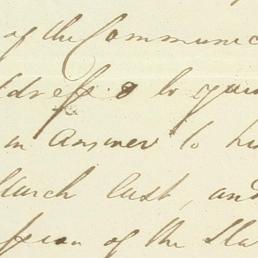 of the Communic
ddress to your
in Answer to h
March last, and
ssion of the Sla